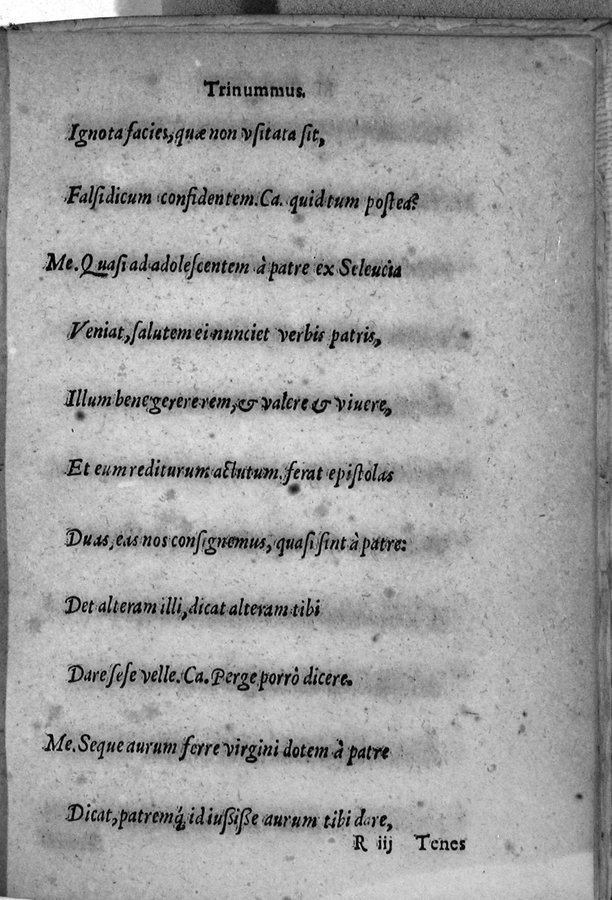 Trinummus.
Ignota facies, quæ non vſitata ſit,
Falſidicum confidentem. Ca. quid tum poſtea?
Me. Quaſi ad adoleſcentem à patre ex Seleucia
Veniat, ſalutem ei nunciet verbis patris,
Illum bene gerere rem, & valere & viuere,
Et eum rediturum actutum. ferat epiſtolas
Duas, eas nos conſignemus, quaſi ſint à patre:
Det alteram illi, dicat alteram tibi
Dare ſeſe velle. Ca. Perge porrò dicere.
Me. Seque aurum ferre virgini dotem à patre
Dicat, patremq́; id iuſſiſſe aurum tibi dare,
R iij Tenes